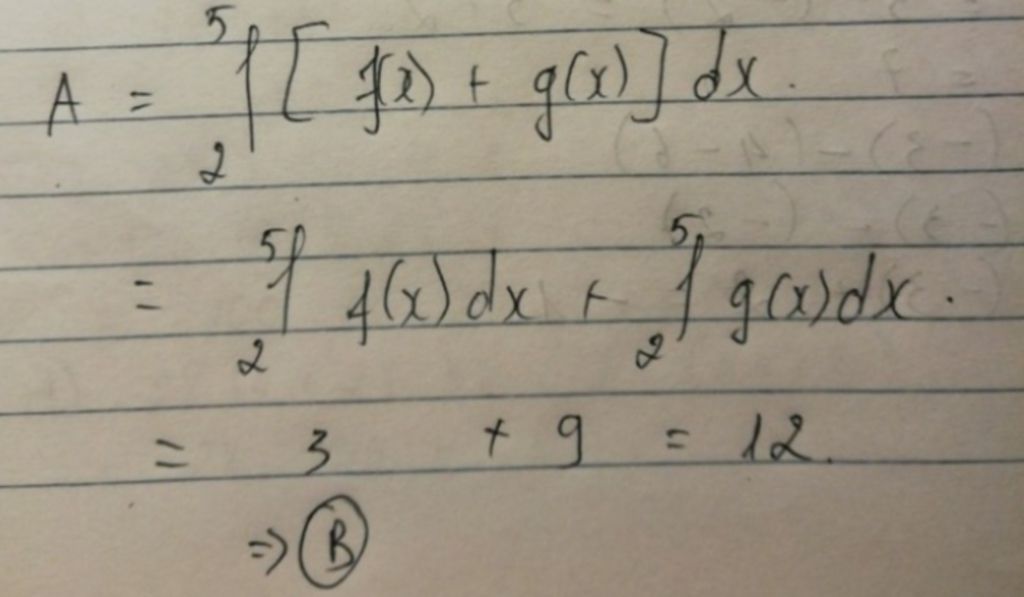 A = ₂⁵∫ [ f(x) + g(x) ] dx.
= ₂⁵∫ f(x) dx + ₂⁵∫ g(x) dx.
= 3 + 9 = 12.
⇒ Ⓑ